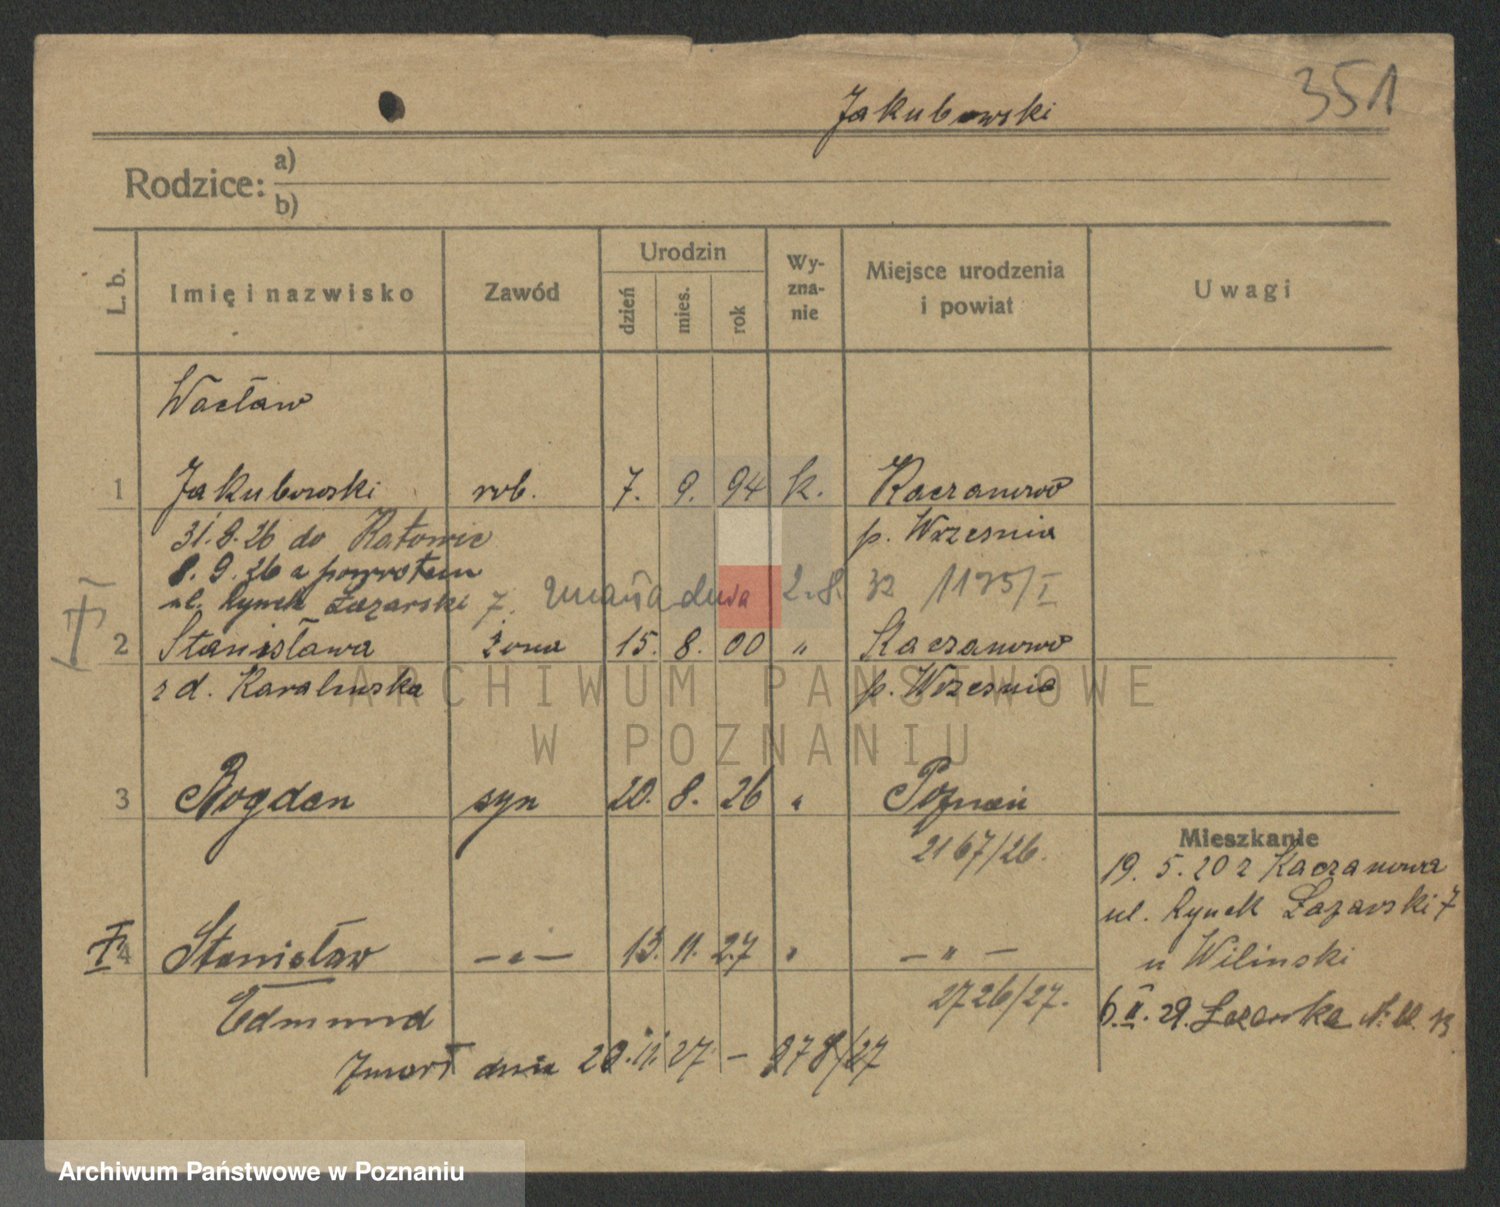 351
Jakubowski
Rodzice: a)
b)
L. b. Imię i nazwisko Zawód Urodzin dzień mies. rok Wy-zna-nie Miejsce urodzenia i powiat Uwagi
Wacław
1 Jakubowski rob. 7. 9. 94 k. Kaczanowo
31.8.26 do Katowic p. Wrzesnia
8.9.26 z powrotem
ul. Rynek Łazarski 7. zmarła dnia 2.8.32 1175/I
2 Stanisława żona 15. 8. 00 " Kaczanowo
z d. p. Wrzesnia
ARCHIWUM PAŃSTWOWE
W POZNANIU
3 Bogdan syn 20. 8. 26 " Poznań
2167/26.
Mieszkanie
19.5.20 z Kaczanowa
ul. Rynek Łazarski 7
u Wilinski
4 Stanisław — " — 13. 11. 27 " — " —
2726/27.
Edmund
6.II.29.
Zmarł dnia 20.11.27 — 878/27
Archiwum Państwowe w Poznaniu